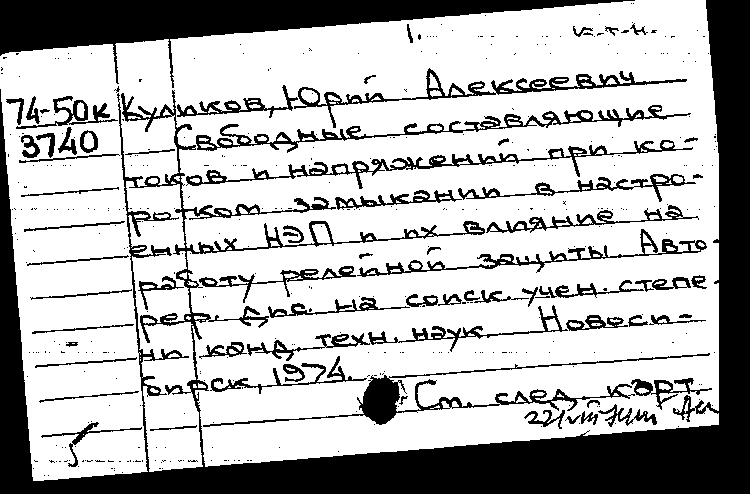 1. к-т-н.
74-50к Куликов, Юрий Алексеевич
3740 Свободные составляющие
токов и напряжений при ко-
ротком замыкании в настро-
енных ЛЭП и их влияние на
работу релейной защиты. Авто-
реф. дис. на соиск. учен. степе-
ни канд. техн. наук. Новоси-
бирск, 1974.
См. след. карт.
5